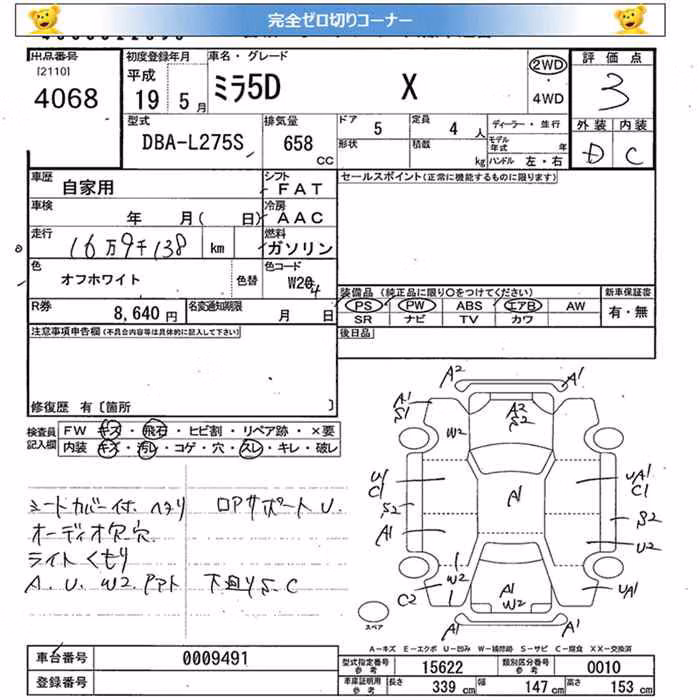 完全ゼロ切りコーナー
出品番号
[2110]
4068
初度登録年月
平成
19 5月
車名・グレード
ミラ5D X
2WD
4WD
評価点
3
外装 内装
D C
型式
DBA-L275S
排気量
658
CC
ドア 5
定員 4 人
形状
積載 kg
ディーラー・並行
モデル年式 年
ハンドル 左・右
車歴
自家用
シフト
FAT
車検
年 月( 日)
冷房
AAC
走行
16万9千138 km
燃料
ガソリン
色
オフホワイト
色替
色コード
W204
R券
8,640 円
名変通知期限
月 日
セールスポイント(正常に機能するものに限ります)
装備品 (純正品に限り○をつけてください)
PS PW ABS エアB AW
SR ナビ TV カワ
新車保証書
有・無
後日品
注意事項申告欄(不具合内容等は具体的に記入して下さい)
修復歴 有〔箇所 〕
検査員
記入欄
FW キズ・飛石・ヒビ割・リペア跡・×要
内装 キズ・汚レ・コゲ・穴・スレ・キレ・破レ
シートカバー付. ヘタリ
ロアサポートU.
オーディオ欠.穴.
ライトくもり
A. U. W2. アト
下廻りS. C
A2
A1
A1
S1
W2
A2
S2
U1
C1
S2
A1
A1
UA1
C1
S2
U2
W2
C2
A1
W2
UA1
A1
A1
スペア
A-キズ E-エクボ U-凹み W-補修跡 S-サビ C-腐食 XX-交換済
車台番号
0009491
登録番号
型式指定番号
参考
15622
類別区分番号
参考
0010
車庫証明用
参考
長さ 339 cm
幅 147 cm
高さ 153 cm